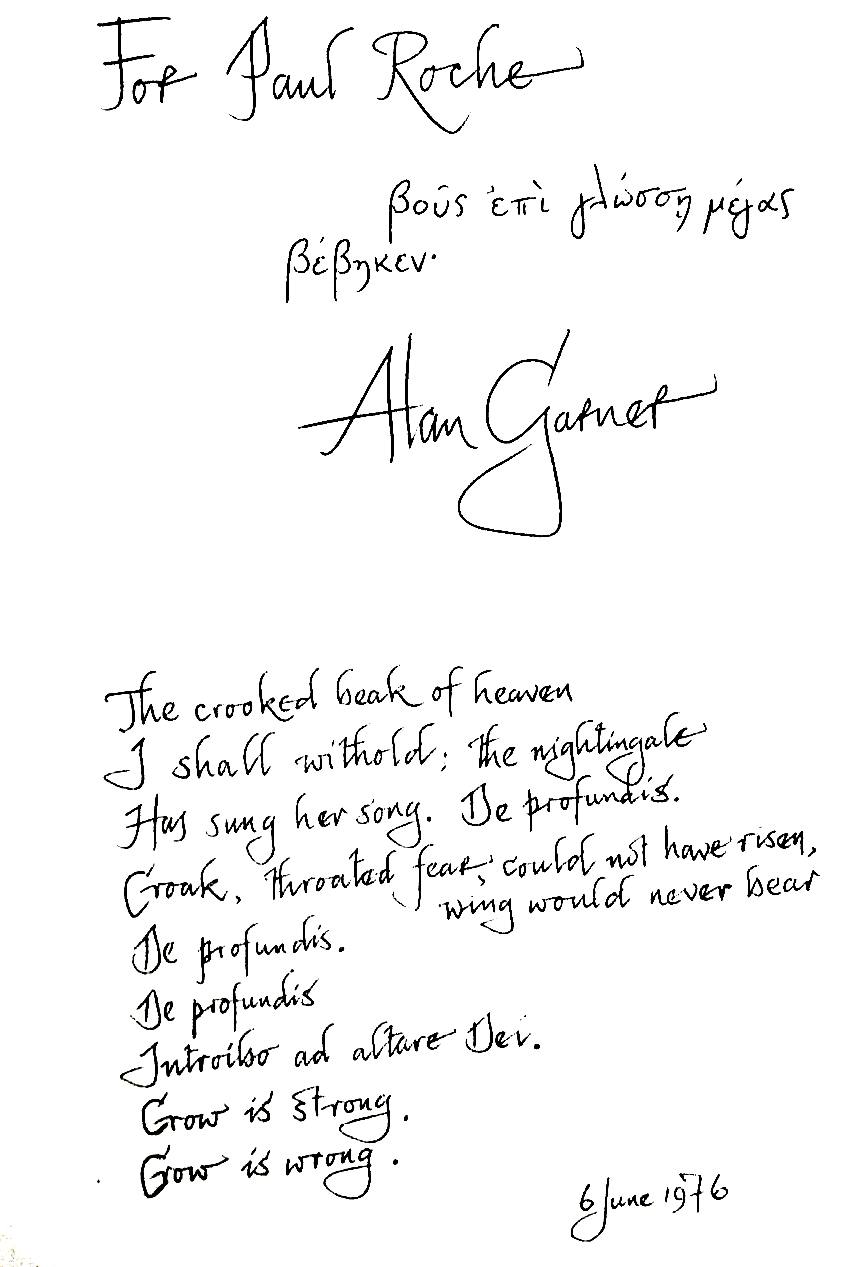 For Paul Roche
βοῦς ἐπὶ γλώσσῃ μέγας
βέβηκεν·
Alan Garner
The crooked beak of heaven
I shall withold; the nightingale
Has sung her song. De profundis.
Croak, throated fear, could not have risen,
wing would never bear
De profundis.
De profundis
Introibo ad altare Dei.
Crow is strong.
Crow is wrong.
6 June 1976